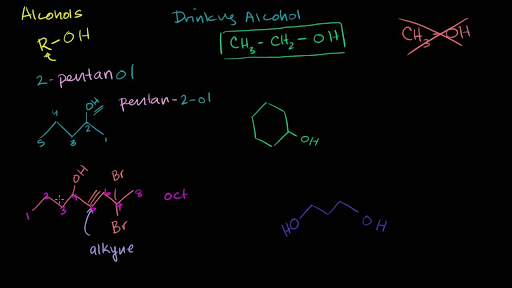 Alcohols
R-OH
Drinking Alcohol
CH3-CH2-OH
CH3-OH
2-pentanol
pentan-2-ol
OH
5 4 3 2 1
OH
OH
Br
1 2 3 4 5 6 7 8
Br
oct
alkyne
HO OH